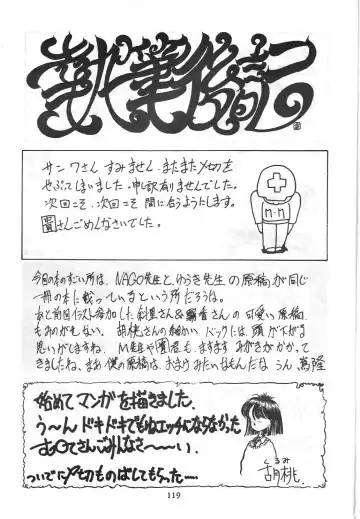 執筆後記
サンワさん すみません、またまた〆切を
やぶってしまいました。申し訳有りませんでした。
次回こそ、次回こそ 間に合うようにします。
さんごめんなさいでした。
M・M
今回の本のすごい所は、NAGO先生と、ゆうき先生の原稿が同じ
一冊の本に載っているという所だろう。
あと前回イラスト参加した、 さん& さんの可愛い原稿
もみのがせない。 胡桃さんの細かいバックには、頭が下がる
思いがしますね。 M先生や も、ますます みがきがかかって
きましたね、まあ僕の原稿は、おまけみたいなもんだな うん
始めてマンガを描きました。
う〜ん ドキドキでもねエッチにならなかった
さんごみんなさ〜〜〜い。
ついでに〆切ものばしてもらった……
くるみ
胡桃
119